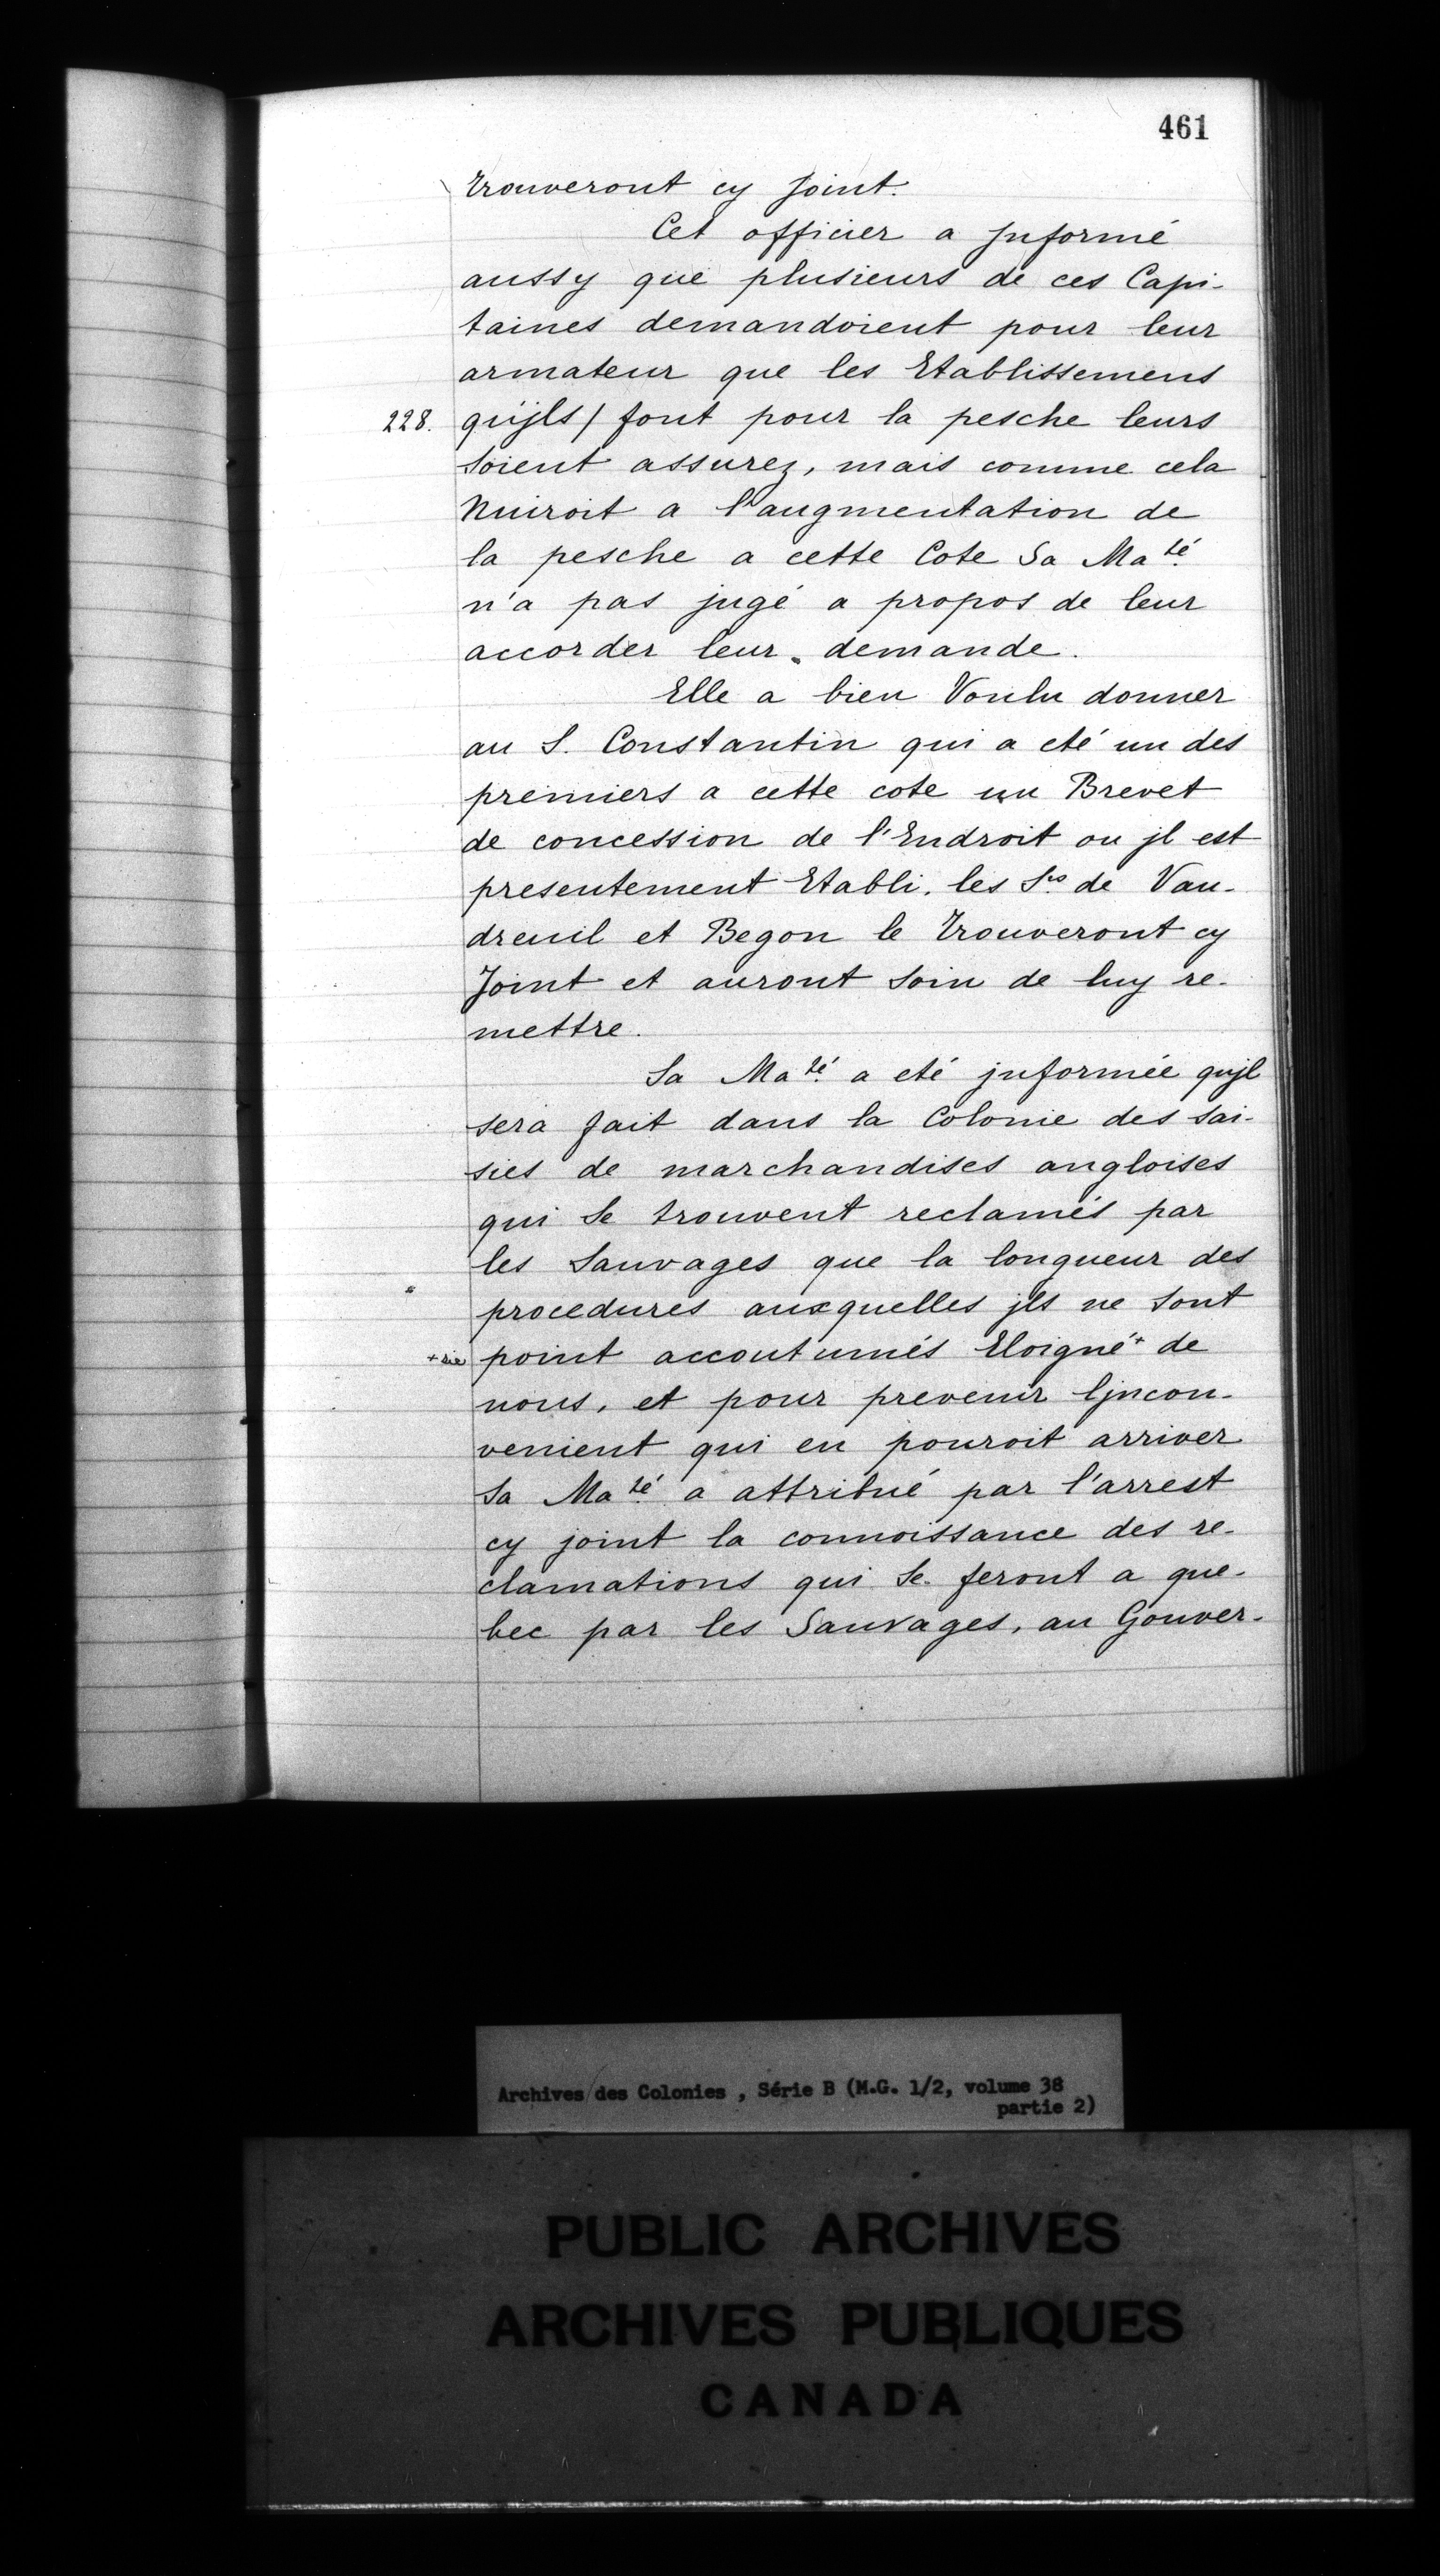 461
trouveront cy Joint.
Cet officier a Jnformé
aussy que plusieurs de ces Capi-
taines demandoient pour leur
armateur que les Etablissemens
228. qu'jls / font pour la pesche leurs
soient assurez, mais comme cela
Nuiroit a l'augmentation de
la pesche a cette Cote Sa Ma.té
n'a pas jugé a propos de leur
accorder leur demande.
Elle a bien Voulu donner
au S. Constantin qui a eté un des
premiers a cette cote un Brevet
de concession de l'Endroit ou jl est
presentement Etabli. les Srs de Vau-
dreuil et Begon le trouveront cy
Joint et auront soin de luy re-
mettre.
Sa Ma.té a eté jnformée qu'jl
sera fait dans la Colonie des sai-
sies de marchandises angloises
qui se trouvent reclamés par
les Sauvages que la longueur des
procedures auxquelles jls ne sont
+ sic point accoutumés Eloigné+ de
nous, et pour prevenir l'jncon-
venient qui en pouroit arriver
Sa Ma.té a attribué par l'arrest
cy joint la connoissance des re-
clamations qui se feront a que-
bec par les Sauvages, au Gouver-
Archives des Colonies , Série B (M.G. 1/2, volume 38
partie 2)
PUBLIC ARCHIVES
ARCHIVES PUBLIQUES
CANADA